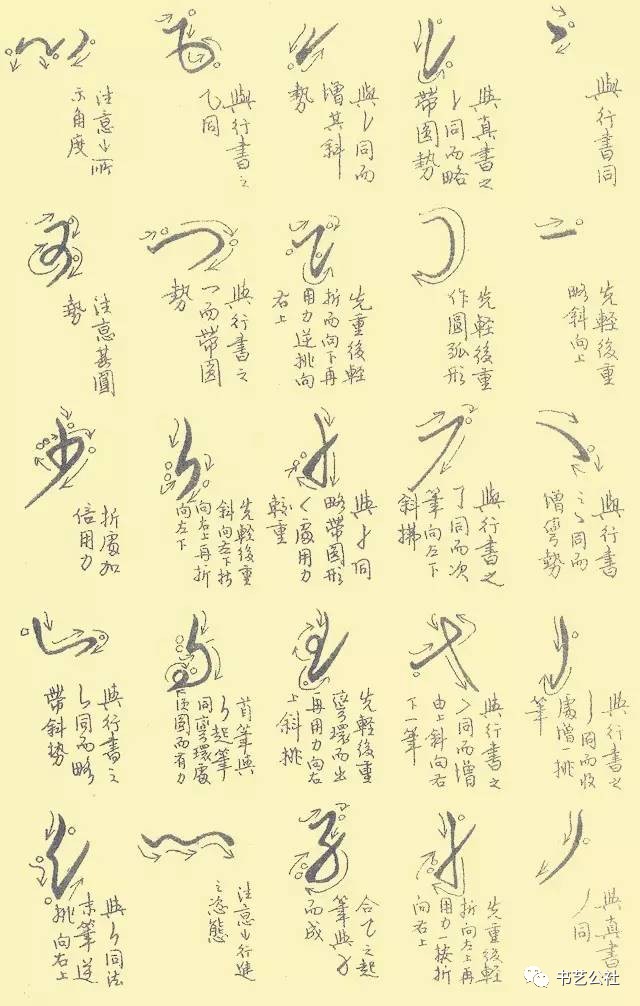 與行書同
先輕後重
略斜向上
與行書
之乀同而
增彎勢
與行書之
丿同而收
處增一挑
筆
與真書
丿同
與真書之
同而略
帶圓勢
先輕後重
作圓弧形
與行書之
了同而次
筆向左下
斜拂
與行書之
同而增
由上斜向右
下一筆
先重後輕
折向左上再
用力一按折
向右上
與同而
增其斜
勢
先重後輕
折而向下再
用力逆挑向
右上
與同
略帶圓形
處用力
較重
先輕後重
彎環而出
再用力向右
上斜挑
合之起
筆與
而成
與行書之
乙同
與行書之
乛而帶圓
勢
先輕後重
斜向左下折
向右上再折
向左下
首筆與
起筆
同彎環處
須圓而有力
注意行進
之姿態
注意所
示角度
注意其圓
勢
折處加
倍用力
與行書之
同而略
帶斜勢
與同法
末筆逆
挑向右上
书艺公社